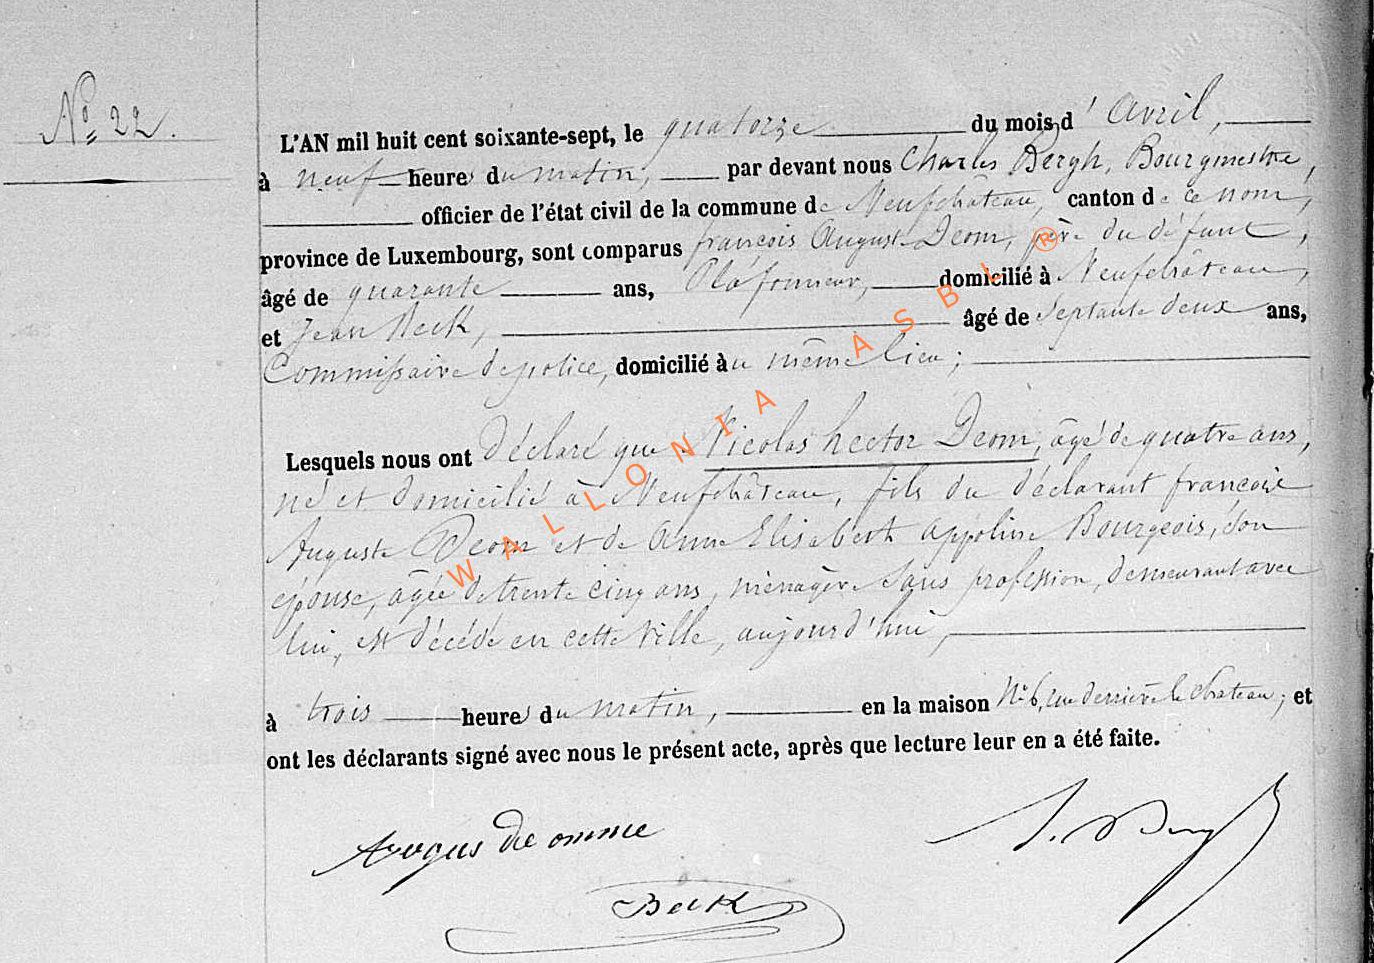 N° 22.
L'AN mil huit cent soixante-sept, le quatorze du mois d'Avril,
à neuf heures du matin, par devant nous Charles Bergh, Bourgmestre,
officier de l'état civil de la commune de Neufchâteau, canton de ce nom,
province de Luxembourg, sont comparus françois August Deom, père du défunt,
âgé de quarante ans, Plafonneur, domicilié à Neufchâteau,
et Jean Beck, âgé de septante deux ans,
Commissaire de police, domicilié au même lieu;
Lesquels nous ont déclaré que Nicolas hector Deom, âgé de quatre ans,
né et domicilié à Neufchâteau, fils du déclarant françois
Auguste Deom et de Anne Elisabeth appoline Bourgeois, son
épouse, âgée de trente cinq ans, ménagère sans profession, demeurant avec
lui, est décédé en cette ville, aujourd'hui,
à trois heures du matin, en la maison N° 6, rue derrière le château; et
ont les déclarants signé avec nous le présent acte, après que lecture leur en a été faite.
Beck
WALLONIA ASBL ®